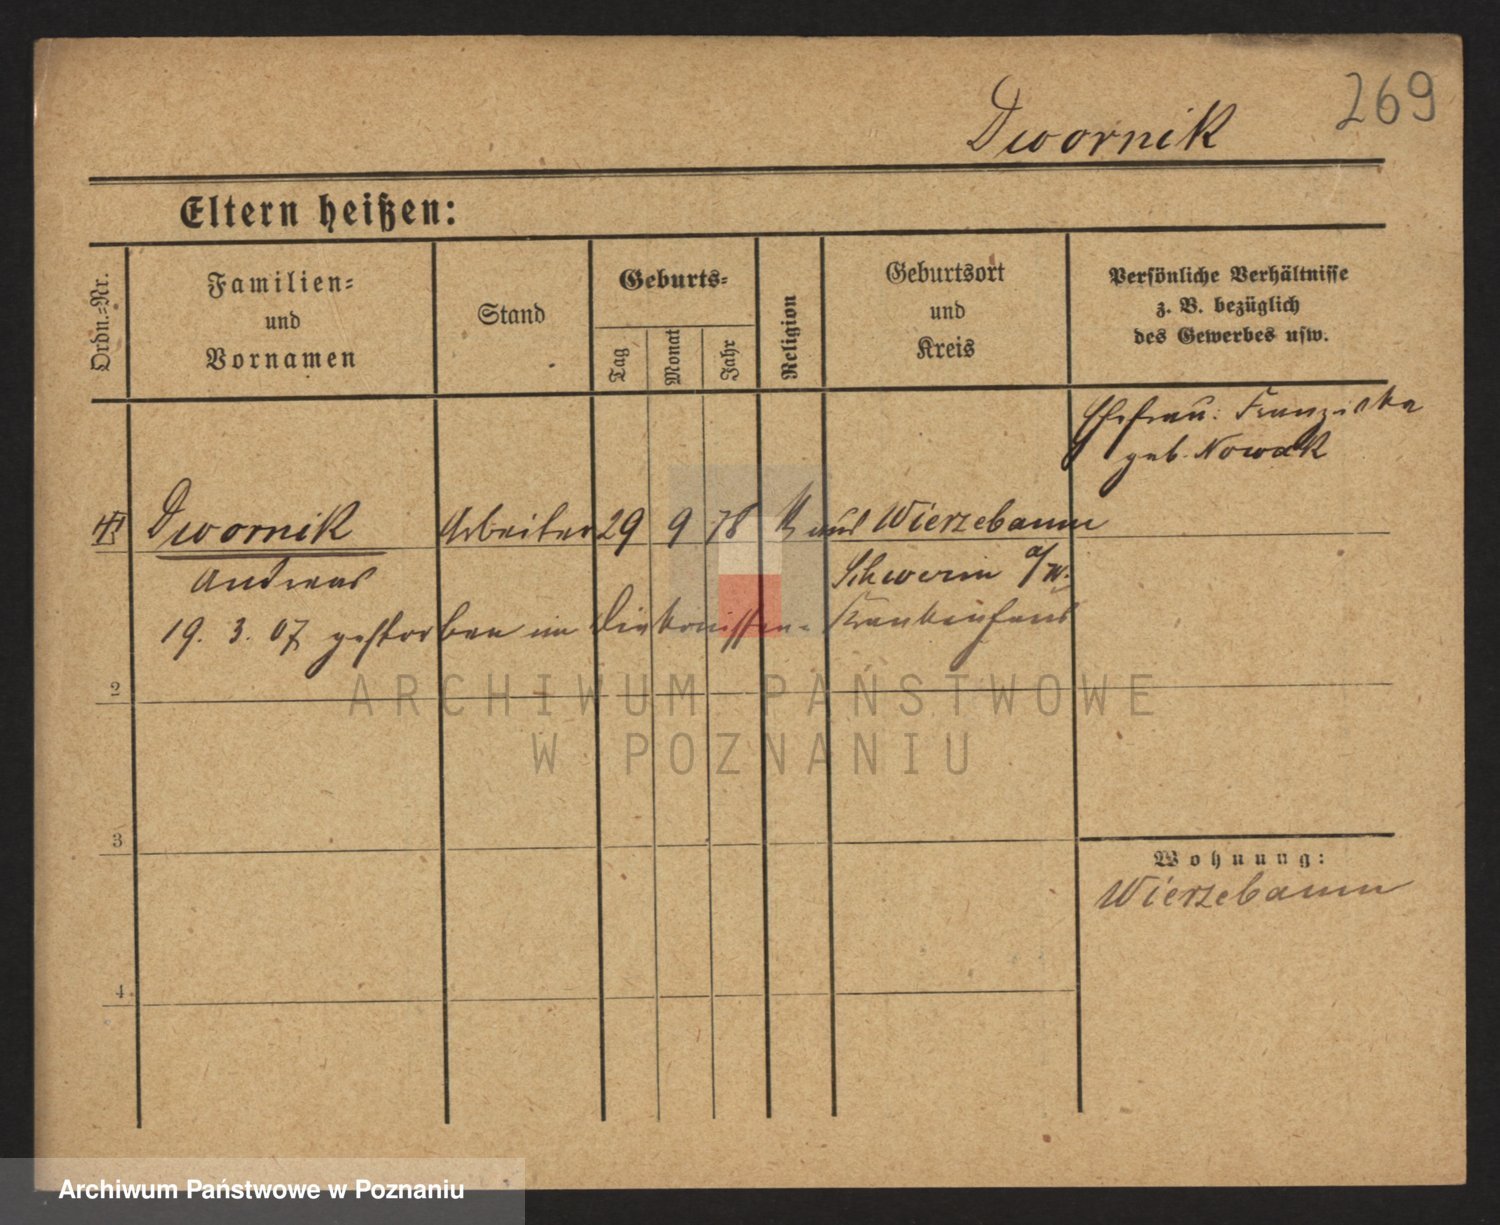 269
Dwornik
Eltern heißen:
Ordn.-Nr.
Familien- und Vornamen
Stand
Geburts-
Tag
Monat
Jahr
Religion
Geburtsort und Kreis
Persönliche Verhältnisse z. B. bezüglich des Gewerbes usw.
Ehefrau: Franziska
geb. Nowak
Dwornik Arbeiter 29 9 78 k aus Wierzebaum
Andreas Schwerin a/W.
19. 3. 07 gestorben im Diakonissen- Krankenhaus
2
3
4.
Wohnung:
Wierzebaum
ARCHIWUM PAŃSTWOWE
W POZNANIU
Archiwum Państwowe w Poznaniu